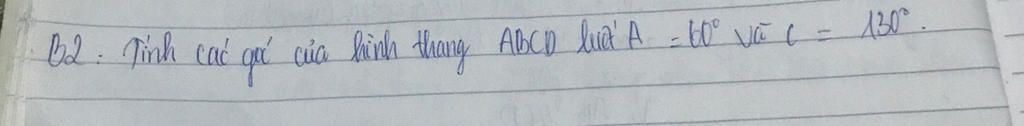 B2: Tính các góc của hình thang ABCD biết A = 60° và C = 130°.